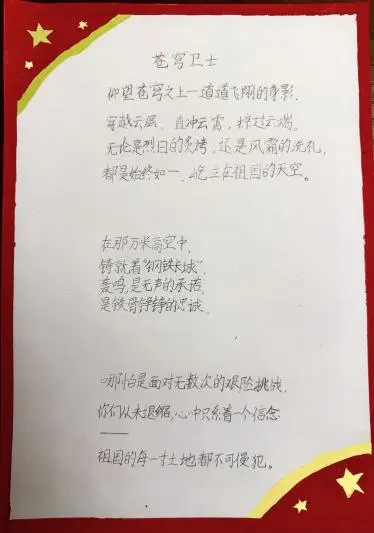 苍穹卫士
仰望苍穹之上一道道飞翔的身影,
穿越云层,直冲云霄,掠过云端。
无论是烈日的炙烤,还是风霜的洗礼,
都是始终如一,屹立在祖国的天空。
在那万米高空中,
铸就着“钢铁长城”,
轰鸣,是无声的承诺,
是铁骨铮铮的忠诚。
哪怕是面对无数次的艰险挑战,
你们从未退缩,心中只系着一个信念
——
祖国的每一寸土地都不可侵犯。